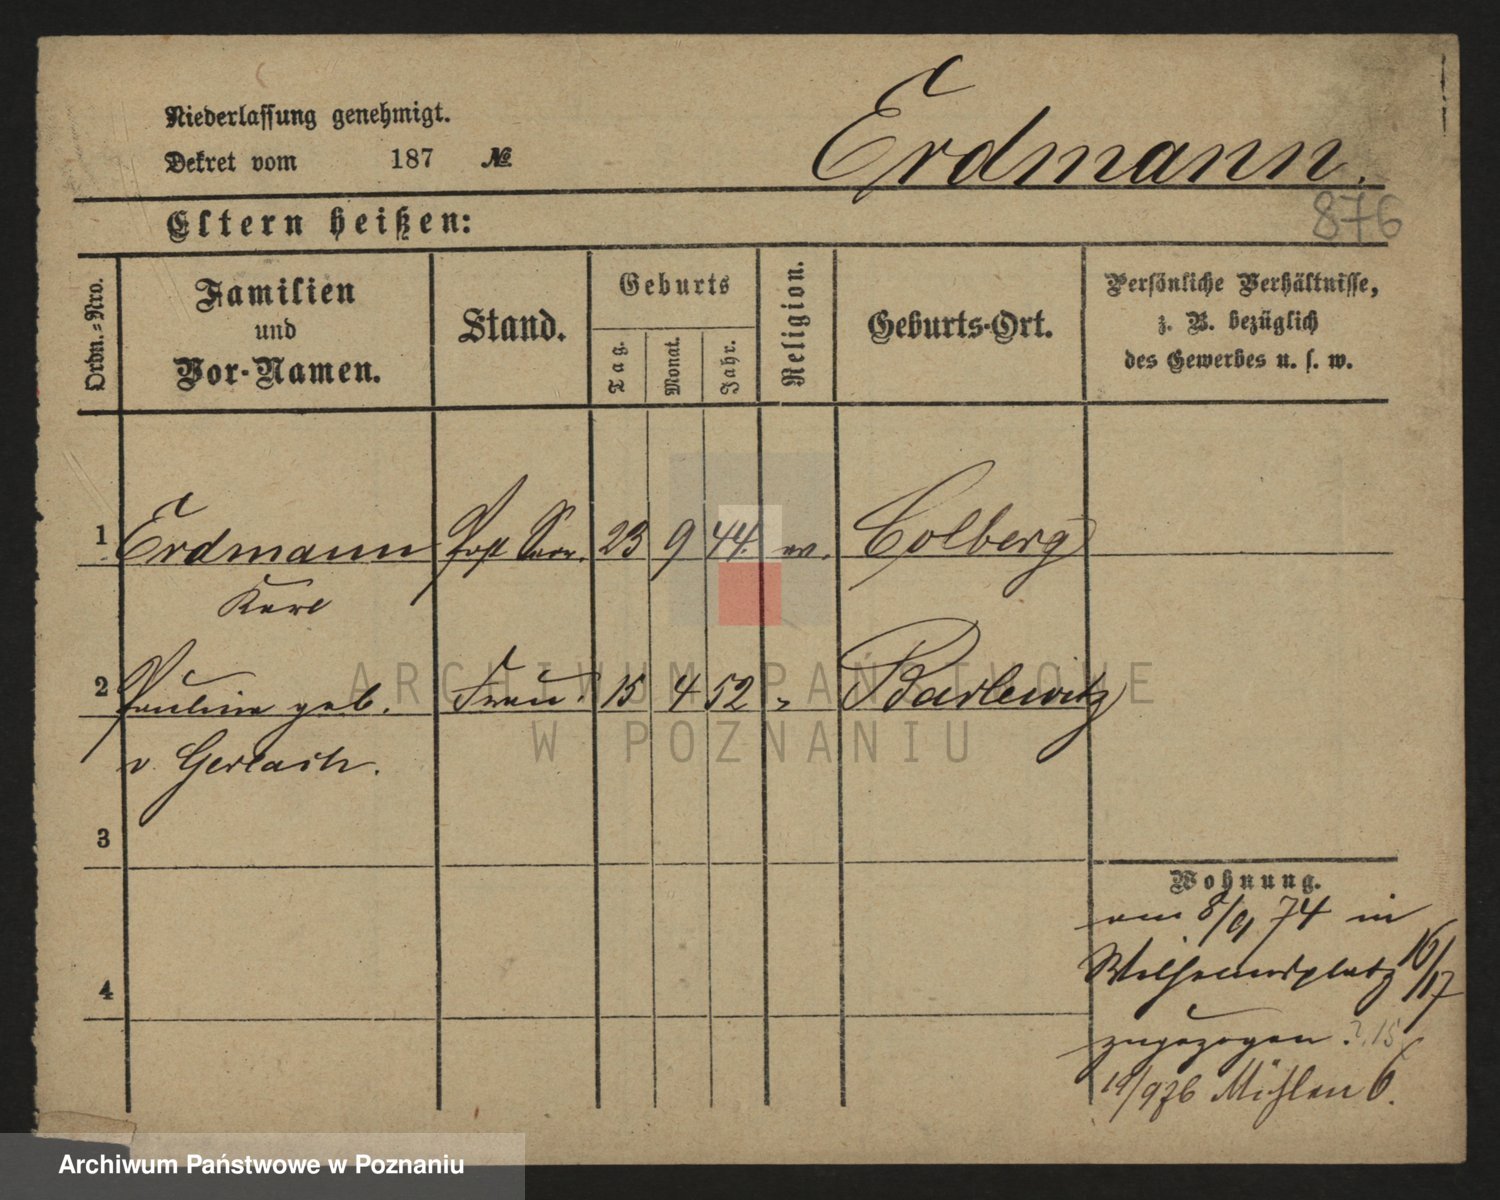 Niederlassung genehmigt.
Dekret vom 187 №
Erdmann.
876
Eltern heißen:
Ordn.-Nro.
Familien
und
Vor-Namen.
Stand.
Geburts
Tag.
Monat.
Jahr.
Religion.
Geburts-Ort.
Persönliche Verhältnisse,
z. B. bezüglich
des Gewerbes u. s. w.
1 Erdmann Post 23 9 44. ev. Colberg
Karl
2 Pauline geb. Frau. 15 4 52 " Barlewitz
v. Gerlach.
3
Wohnung.
am 8/9 74 in
Wilhelmsplatz 16/17
4
zugezogen
19/9 76 Mühlen 6.
ARCHIWUM PAŃSTWOWE
W POZNANIU
Archiwum Państwowe w Poznaniu